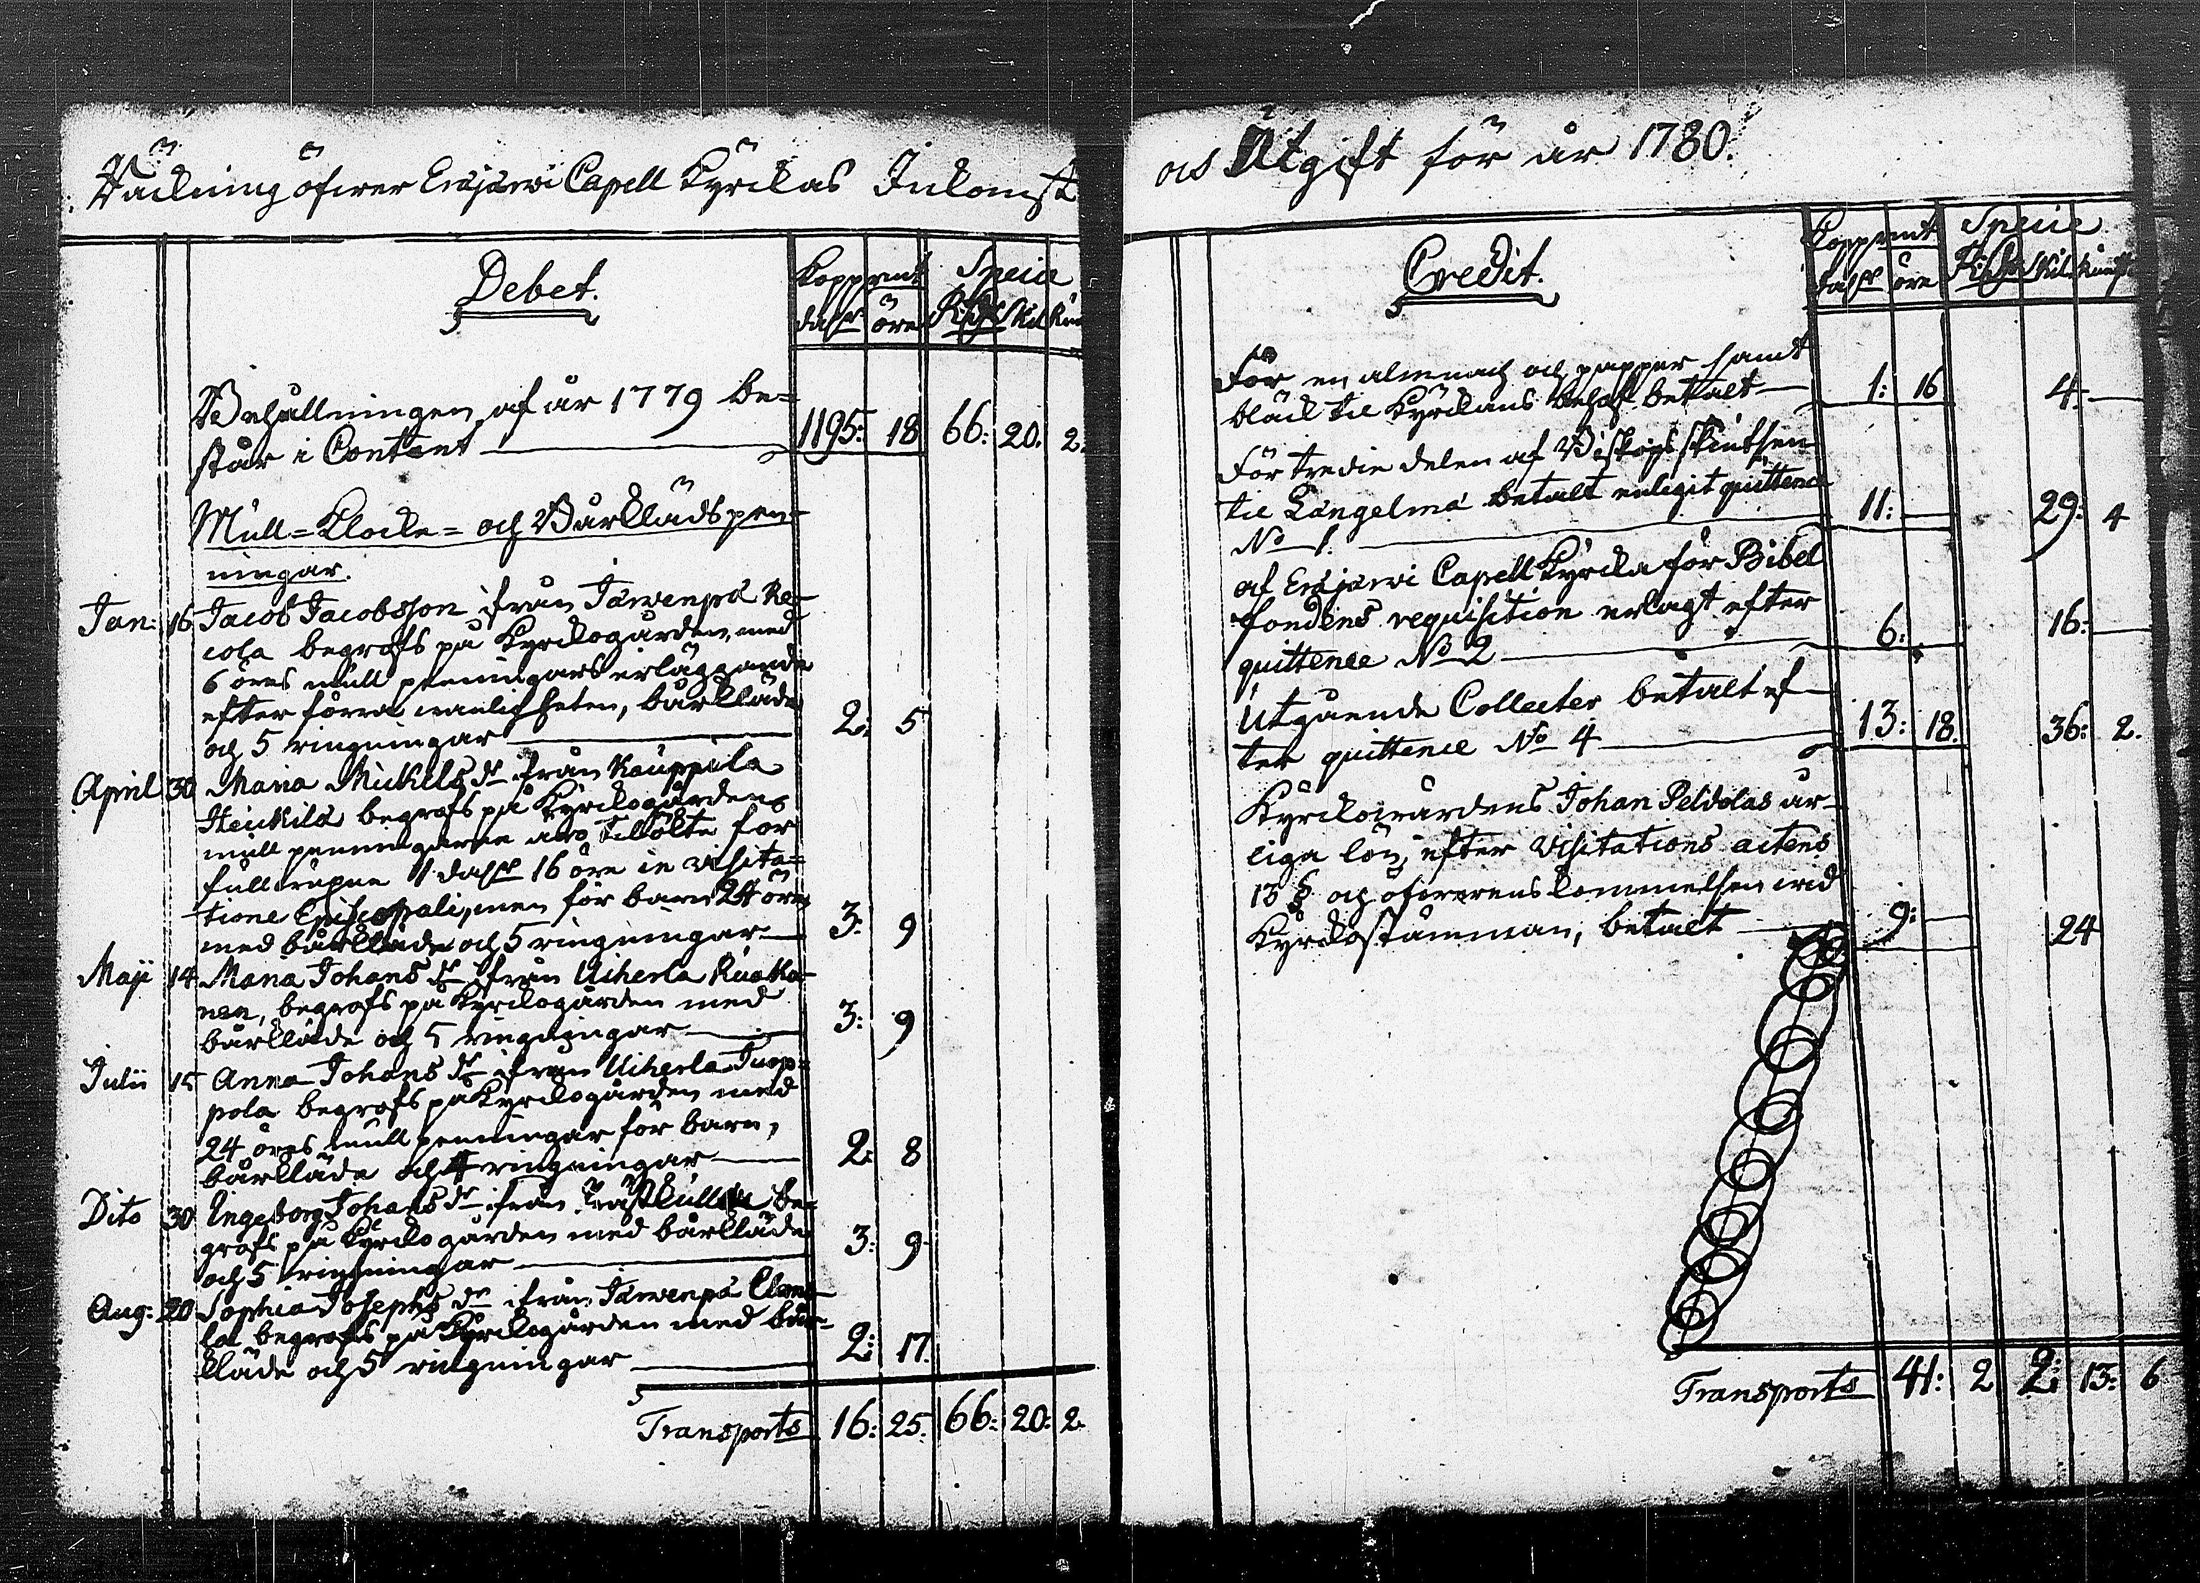 Räckning öfwer Eräjärwi Capell Kyrckas Inkomst
och Utgift för år 1780.
Debet.
Kopprmt Specie
dalr öre Rdr skil. Runst
Behållningen af år 1779 be=
står i Contant 1195: 18 66: 20. 2.
Mull=Klocke= och Bårklädspen-
ningar.
Jan: 16 Jacob Jacobsson från Järwenpä Re-
cola begrofs på Kyrckogården med
6 öres mull penningars erläggande
efter förra wanligheten, bårkläde
och 5 ringningar 2: 5
April 30 Maria Mickelsdr från Kauppila
Heickilä begrofs på Kyrckogården
mull penningarne äro tilökte för
fullwuxne 1 dalr 16 öre in visita=
tione Episcopali, men för barn 24 öre
med bårkläde och 5 ringningar 3: 9
Maji 14 Maria Johansdr från Uiherla Ruotka-
nen, begrofs på Kyrckogården med
bårkläde och 5 ringningar 3: 9
Julii 15 Anna Johansdr från Uiherla Tuop=
pola begrofs på Kyrckogården med
24 öres mull penningar för barn,
bårkläde och 4 ringningar 2: 8
Dito 30 Ingeborg Johansdr från be-
grofs på Kyrckogården med bårkläde
och 5 ringningar 3: 9
Aug: 20 Sophia Josephsdr från Järwenpä
begrofs på Kyrckogården med bår-
kläde och 5 ringningar 2: 17.
Transports 16: 25. 66: 20: 2.
Credit.
Kopprmt Specie
dalr öre Rdr Skil. Runst
För en almenach och papper samt
bläck til Kyrckans behof betalt 1: 16 4.
För tredie delen af Biskops skiutsen
til Längelmä betalt enligit quittence
No 1. 11: 29: 4
af Eräjärwi Capell Kyrcka för Bibel
fondens requisition erlagt efter
quittence No 2 6: 16:
Utgående Collecter betalt ef-
ter quittence No 4 13: 18. 36: 2.
Kyrckowärdens Johan Peldolas år-
liga lön, efter Visitations actens
13 § och öfwerenskommelsen wid
Kyrckostämman, betalt 9: 24
Transports 41: 2 2: 13: 6